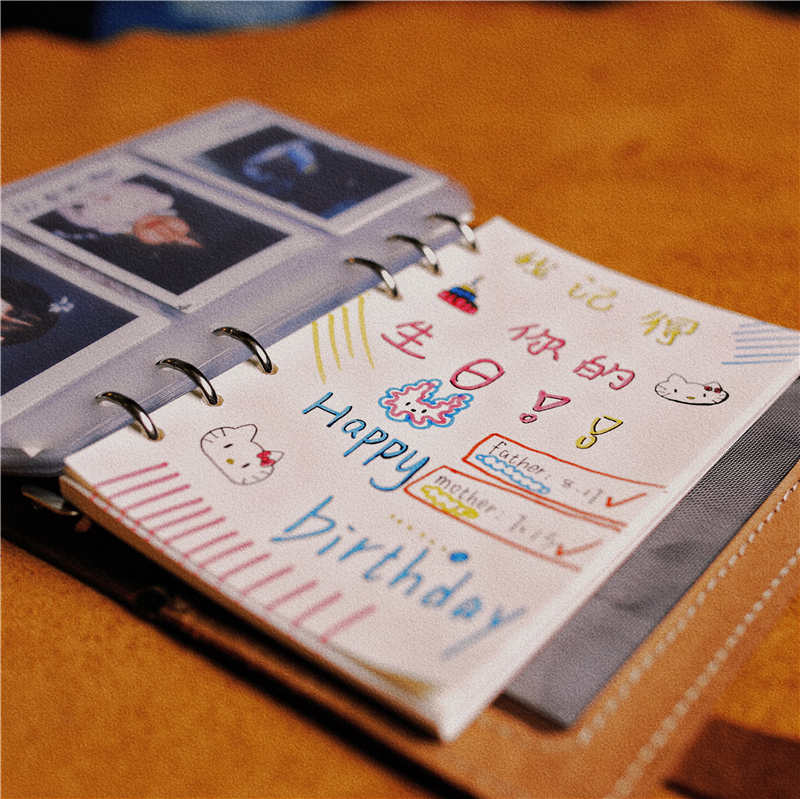 我记得
你的
生日!!
Happy
birthday
Father: 8.17
mother: 7.15